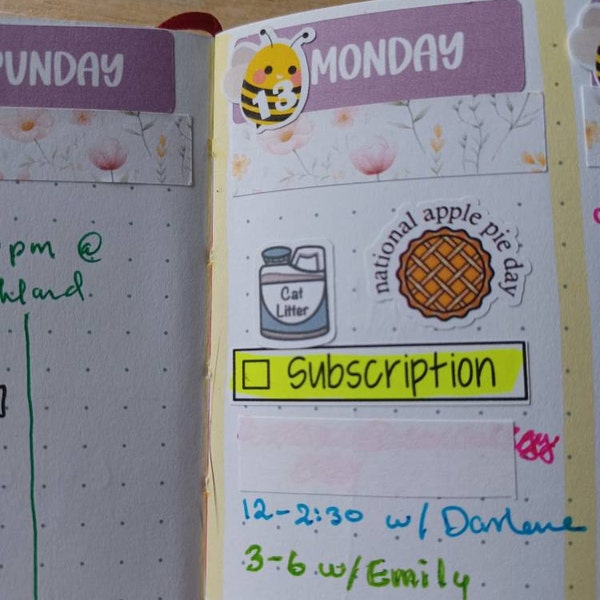 PUNDAY
pm @
MONDAY
13
national apple pie day
Cat
Litter
Subscription
12-2:30 w/ Darlene
3-6 w/ Emily